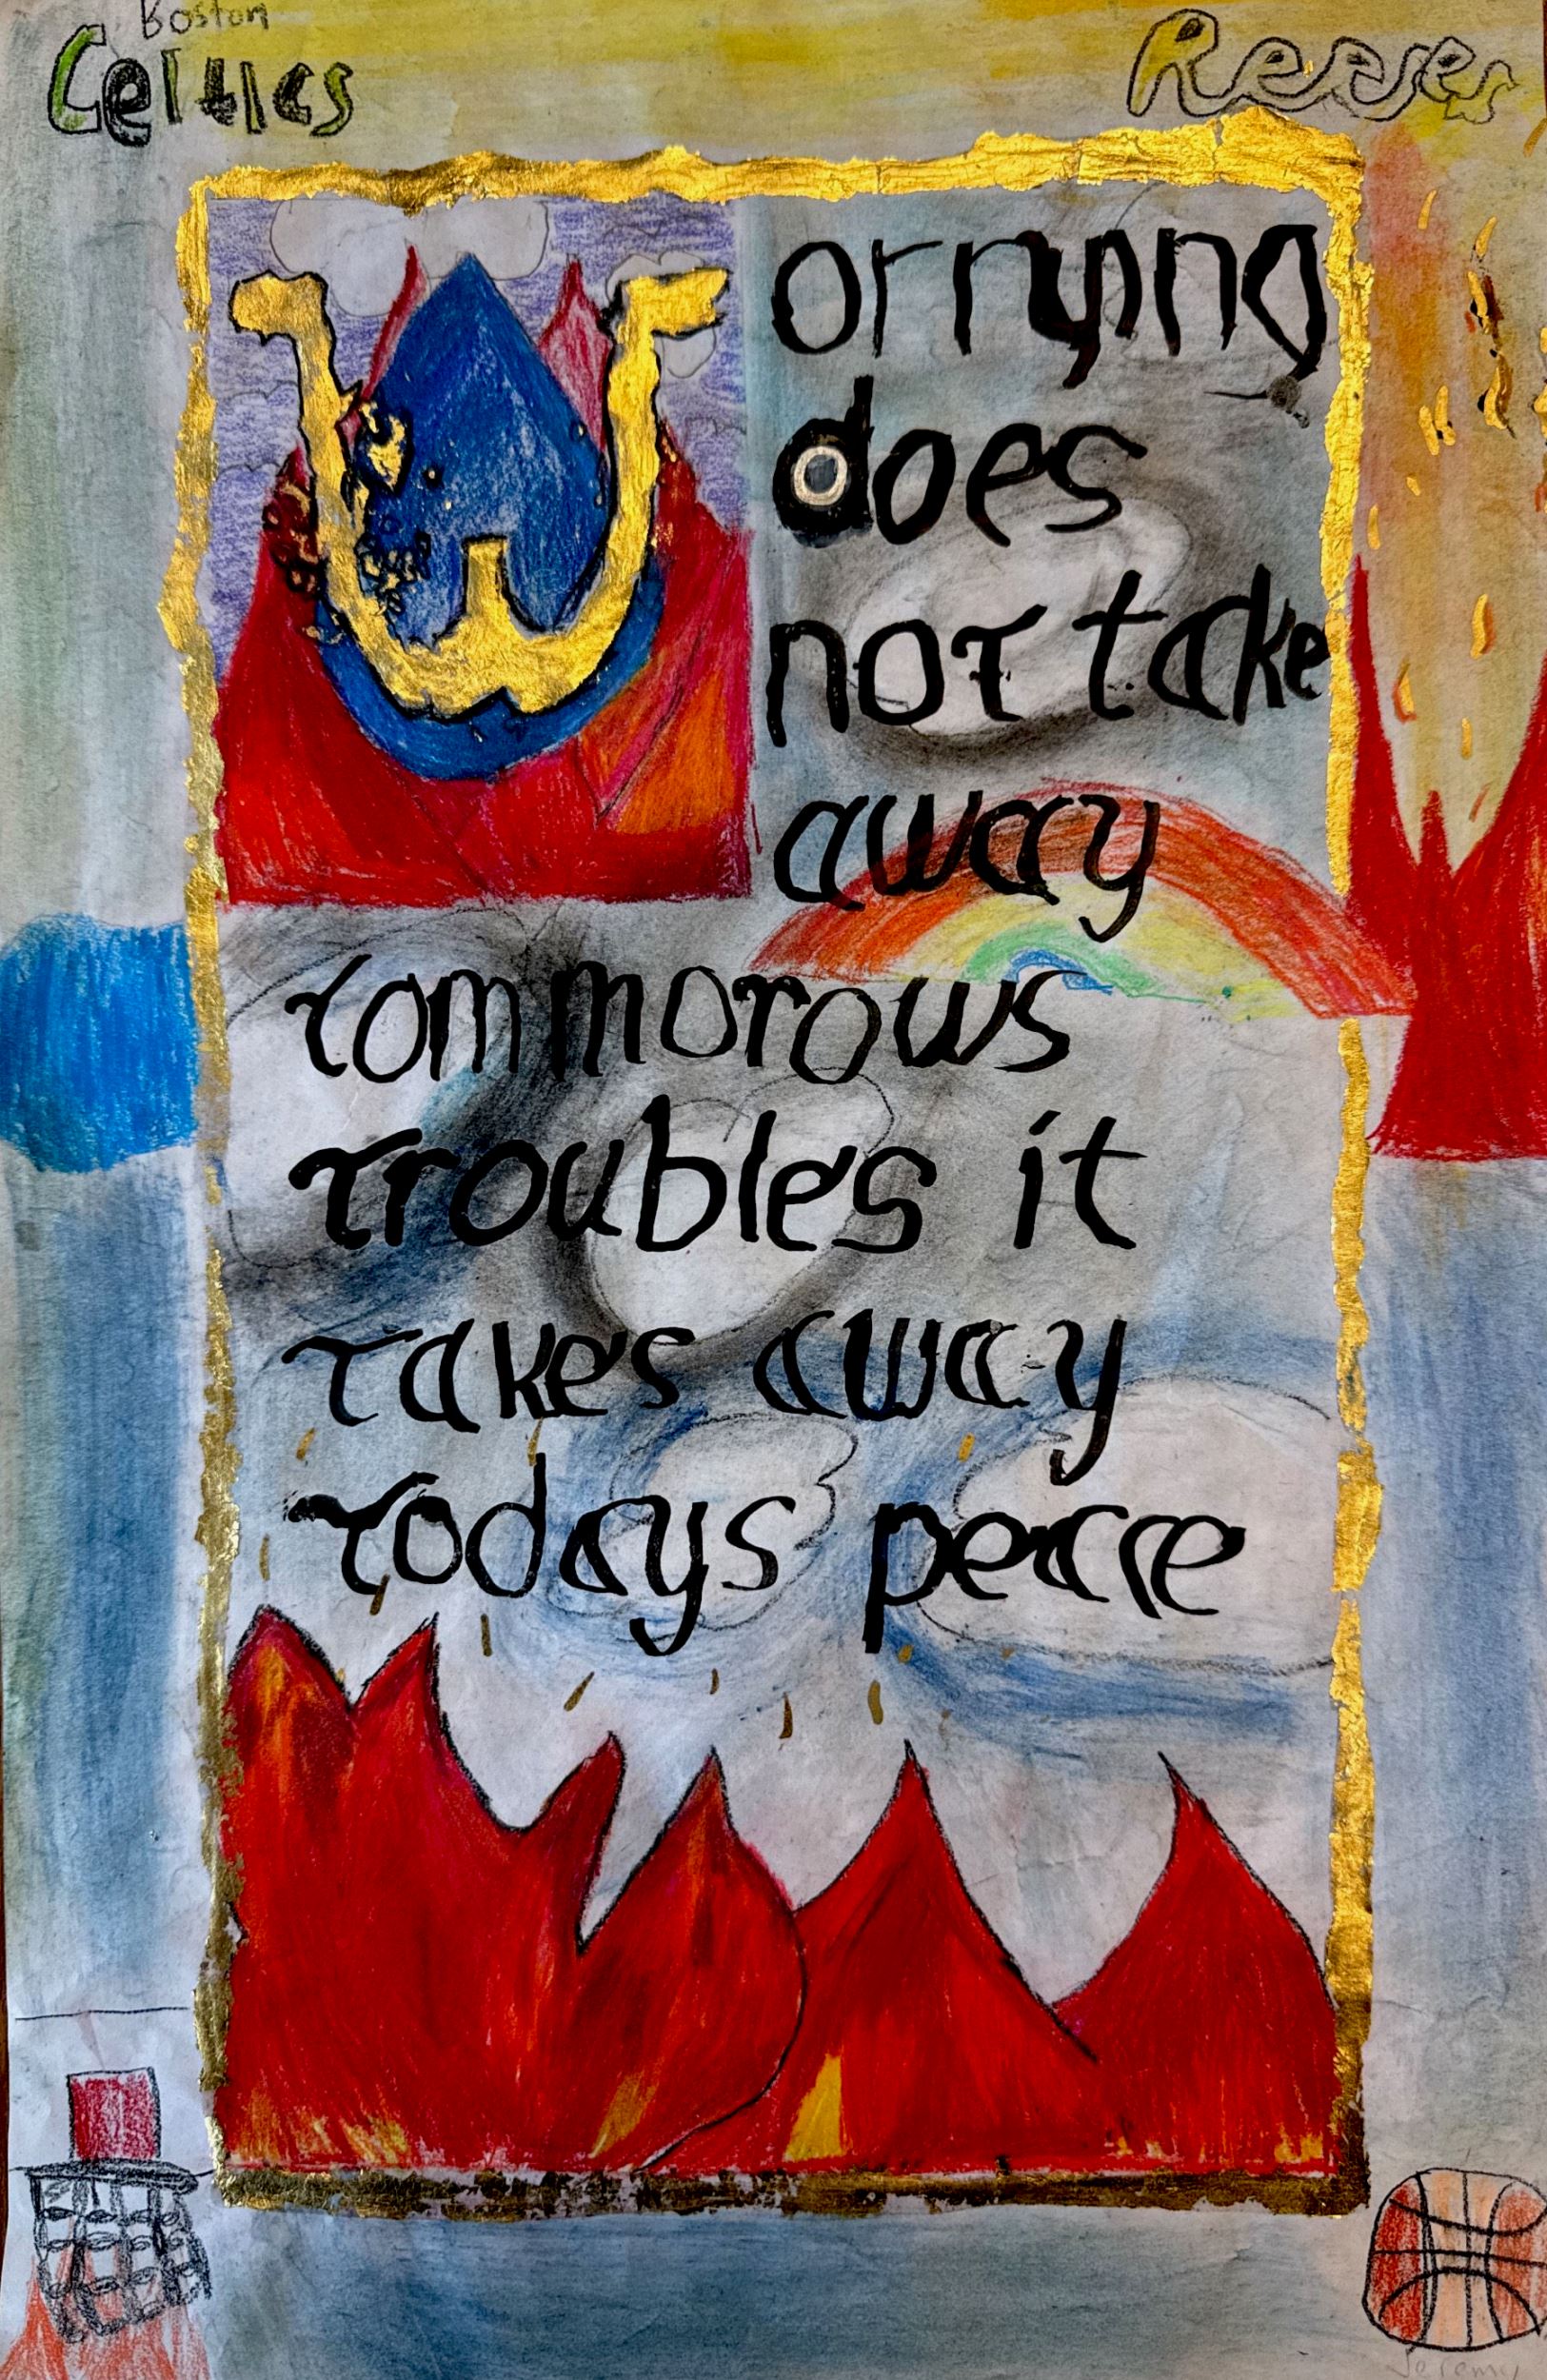 Boston
Celtics
Reeses
Worrying
does
not take
away
tommorows
troubles it
takes away
todays peace